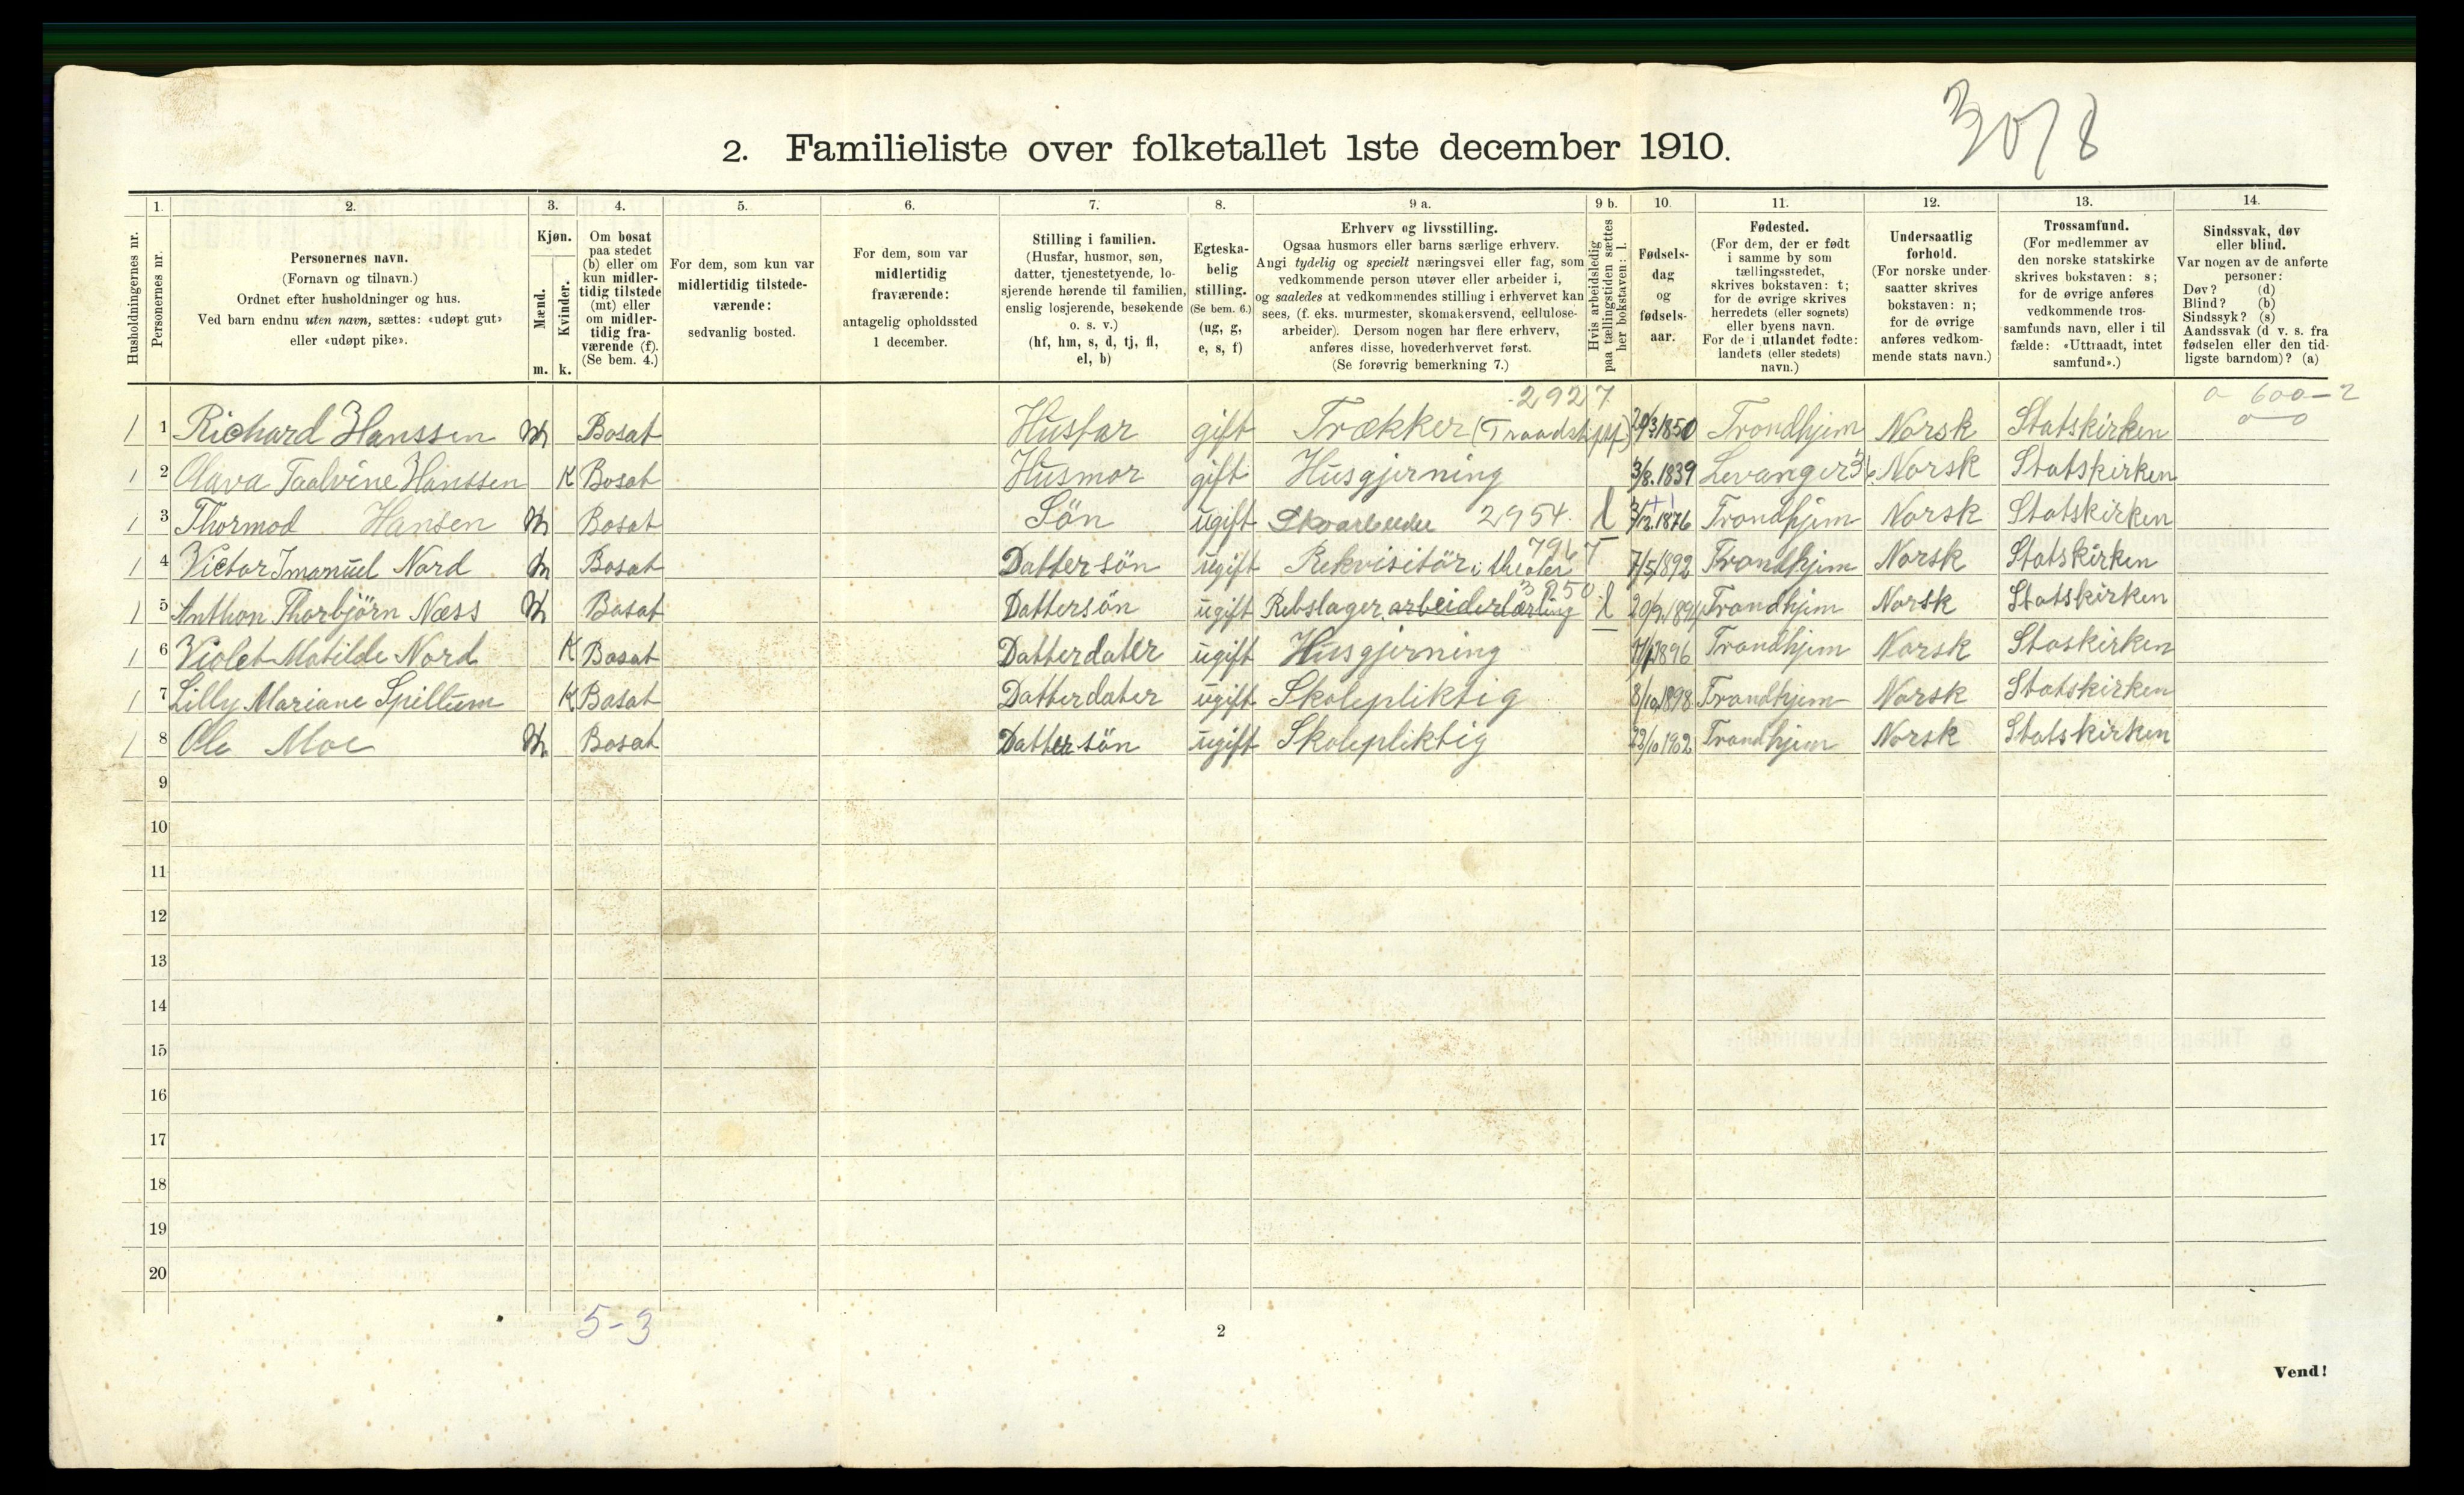 3078
2. Familieliste over folketallet 1ste december 1910.
1. 2. 3. 4. 5. 6. 7. 8. 9 a. 9 b. 10. 11. 12. 13. 14.
Husholdningernes nr.
Personernes nr.
Personernes navn.
(Fornavn og tilnavn.)
Ordnet efter husholdninger og hus.
Ved barn endnu uten navn, sættes: «udøpt gut»
eller «udøpt pike».
Kjøn.
Mænd.
Kvinder.
m. k.
Om bosat
paa stedet
(b) eller om
kun midler-
tidig tilstede
(mt) eller
om midler-
tidig fra-
værende (f).
(Se bem. 4.)
For dem, som kun var
midlertidig tilstede-
værende:
sedvanlig bosted.
For dem, som var
midlertidig
fraværende:
antagelig opholdssted
1 december.
Stilling i familien.
(Husfar, husmor, søn,
datter, tjenestetyende, lo-
sjerende hørende til familien,
enslig losjerende, besøkende
o. s. v.)
(hf, hm, s, d, tj, fl,
el, b)
Egteska-
belig
stilling.
(Se bem. 6.)
(ug, g,
e, s, f)
Erhverv og livsstilling.
Ogsaa husmors eller barns særlige erhverv.
Angi tydelig og specielt næringsvei eller fag, som
vedkommende person utøver eller arbeider i,
og saaledes at vedkommendes stilling i erhvervet kan
sees, (f. eks. murmester, skomakersvend, cellulose-
arbeider). Dersom nogen har flere erhverv,
anføres disse, hovederhvervet først.
(Se forøvrig bemerkning 7.)
Hvis arbeidsledig
paa tællingstiden sættes
her bokstaven: l.
Fødsels-
dag
og
fødsels-
aar.
Fødested.
(For dem, der er født
i samme by som
tællingsstedet,
skrives bokstaven: t;
for de øvrige skrives
herredets (eller sognets)
eller byens navn.
For de i utlandet fødte:
landets (eller stedets)
navn.)
Undersaatlig
forhold.
(For norske under-
saatter skrives
bokstaven: n;
for de øvrige
anføres vedkom-
mende stats navn.)
Trossamfund.
(For medlemmer av
den norske statskirke
skrives bokstaven: s;
for de øvrige anføres
vedkommende tros-
samfunds navn, eller i til
fælde: «Uttraadt, intet
samfund».)
Sindssvak, døv
eller blind.
Var nogen av de anførte
personer:
Døv? (d)
Blind? (b)
Sindssyk? (s)
Aandssvak (d v. s. fra
fødselen eller den tid-
ligste barndom)? (a)
2927 0-600-2
1 1 Richard Hanssen M Bosat Husfar gift Trækker 20/3 1850 Trondhjem Norsk Statskirken 0-0
1 2 Hanssen K Bosat Husmor gift Husgjerning 3/8.1839 Levanger Norsk Statskirken
1 3 Thormod Hansen M Bosat Sön ugift Skoarbeider 2954. l 3/12.1876 Trondhjem Norsk Statskirken
7967
1 4 Victor Imanuel Nord M Bosat Dattersön ugift Rekvisitör i theater 7/5 1892 Trondhjem Norsk Statskirken
1 5 Anthon Thorbjörn Næss M Bosat Dattersön ugift Rebslager arbeiderlærling l Trondhjem Norsk Statskirken
1 6 Violet Matilde Nord K Bosat Datterdater ugift Husgjerning 1896 Trondhjem Norsk Staskirken
1 7 Lilly Mariane Spillum K Bosat Datterdater ugift Skolepliktig 8/10 1898 Trondhjem Norsk Statskirken
1 8 Ole Moe M Bosat Dattersön ugift Skolepliktig 22/10 1902 Trondhjem Norsk Statskirken
9
10
11
12
13
14
15
16
17
18
19
20
5-3
2
Vend!